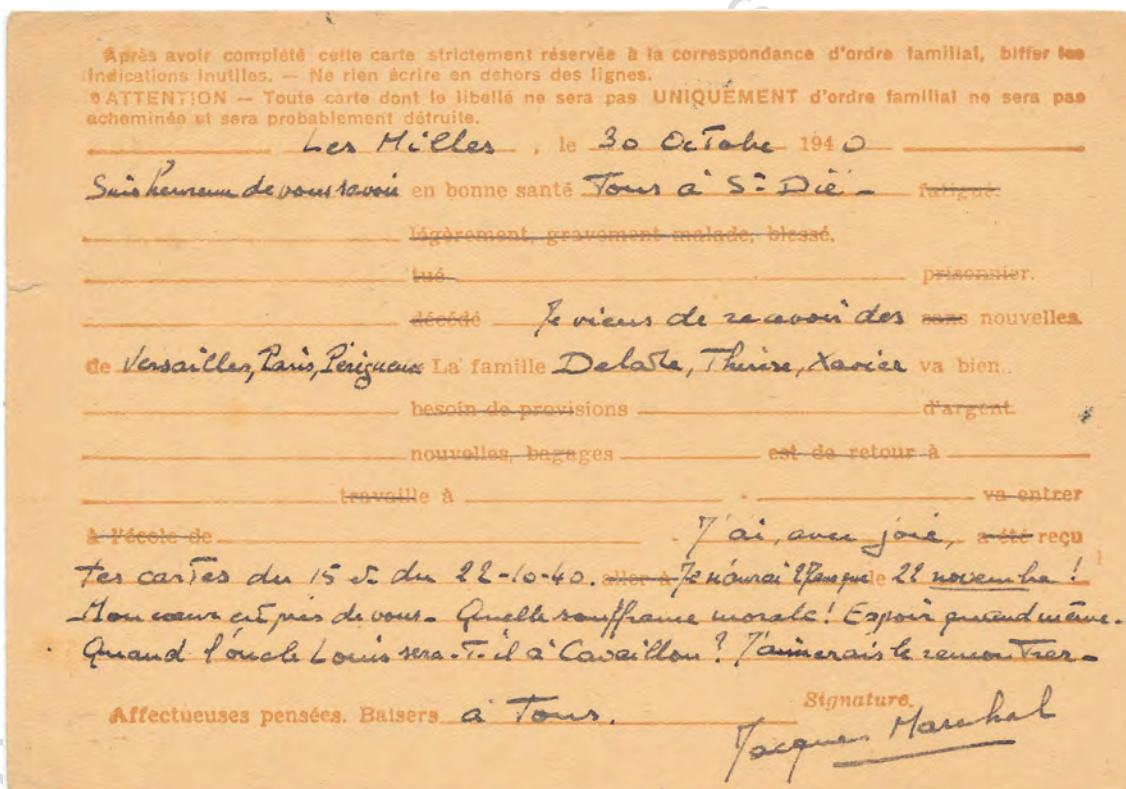 Après avoir complété cette carte strictement réservée à la correspondance d'ordre familial, biffer les
indications inutiles. — Ne rien écrire en dehors des lignes.
ATTENTION — Toute carte dont le libellé ne sera pas UNIQUEMENT d'ordre familial ne sera pas
acheminée et sera probablement détruite.
Les Milles, le 30 Octobre 1940
Suis heureux de vous savoir en bonne santé Tous à St Dié - fatigué.
légèrement, gravement malade, blessé.
tué prisonnier.
décédé Je viens de recevoir des sans nouvelles
de Versailles, Paris, Périgueux La famille Thérèse, Xavier va bien.
besoin de provisions d'argent
nouvelles, bagages est de retour à
travaille à va entrer
à l'école de J'ai, avec joie, a été reçu
tes cartes du 15 du 22-10-40. aller à Je n'aurai le 22 novembre !
Mon cœur est près de vous - Quelle souffrance morale ! Espoir quand même -
Quand l'oncle Louis sera-t-il à Cavaillon ? J'aimerais le rencontrer -
Affectueuses pensées. Baisers à Tous. Signature.
Jacques Marchal